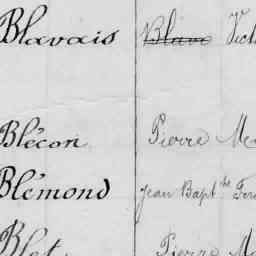 Blavais Blave
Blécon Pierre
Blémond Jean Bapt.te
Blet Pierre